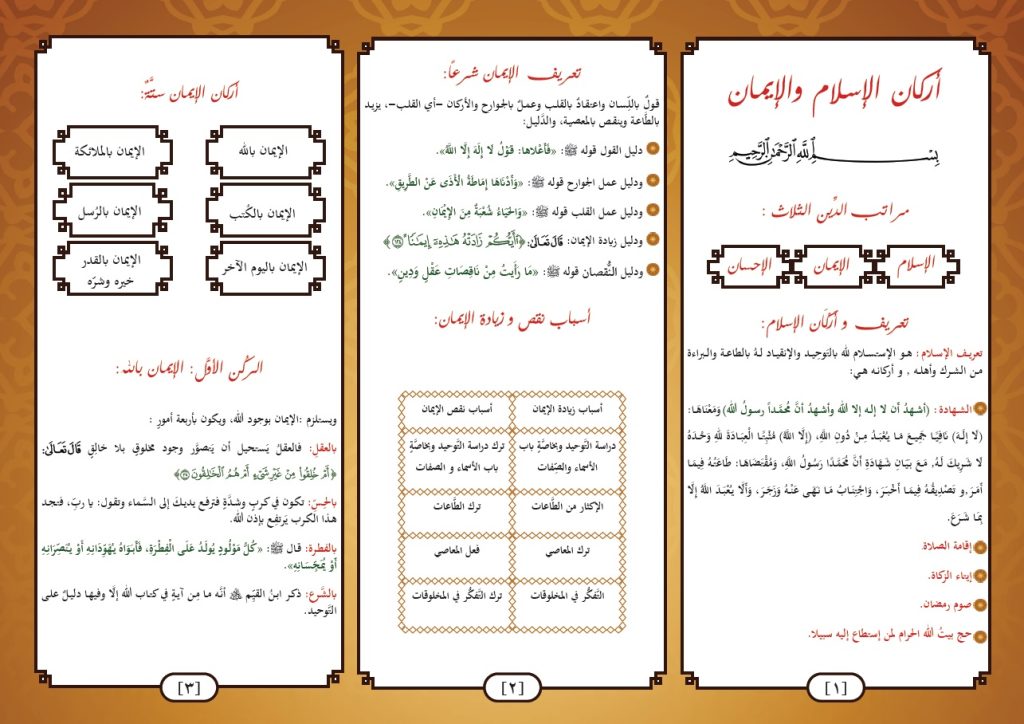 أركان الإسلام والإيمان
بِسْمِ اللَّهِ الرَّحْمَٰنِ الرَّحِيمِ
مراتب الدِّين الثلاث :
الإسلام
الإيمان
الإحسان
تعريف و أركان الإسلام:
تعريف الإسلام: هو الإستسلام لله بالتوحيد والإنقياد لهُ بالطاعة والبراءة
من الشرك وأهله , و أركانه هي:
الشهادة: (أشهدُ أن لا إله إلا الله وأشهدُ أنَّ مُحمَّداً رسولُ الله) وَمَعْنَاهَا:
(لا إِلَهَ) نَافِيًا جَمِيعَ مَا يُعْبَدُ مِنْ دُونِ اللَّهِ، (إِلَّا اللَّهُ) مُثْبِتًا الْعِبَادَةَ لِلهِ وَحْدَهُ
لَا شَرِيكَ لَهُ. مَعَ بَيَانِ شَهَادَةِ أَنَّ مُحَمَّدًا رَسُولُ اللَّهِ، وَمُقْتَضَاهَا: طَاعَتُهُ فِيمَا
أَمَرَ,و تَصْدِيقُهُ فِيمَا أَخْبَرَ، وَاجْتِنَابُ مَا نَهَى عَنْهُ وَزَجَرَ، وَأَلَّا يُعْبَدَ اللَّهُ إِلَّا
بِمَا شَرَعَ.
إقامة الصلاة.
إيتاء الزكاة.
صوم رمضان.
حج بيتُ الله الحرام لمن إستطاع إليه سبيلا.
[١]
تعريف الإيمان شرعاً:
قولٌ باللِّسان واعتقادٌ بالقلب وعملٌ بالجوارح والأركان –أي القلب–، يزيد
بالطَّاعة وينقص بالمعصية، والدَّليل:
دليل القول قوله ﷺ: «فَأَعْلاها: قَوْلُ لا إِلَهَ إِلَّا اللَّهُ».
ودليل عمل الجوارح قوله ﷺ: «وَأَدْنَاهَا إِمَاطَةُ الأَذَى عَنْ الطَّرِيقِ».
ودليل عمل القلب قوله ﷺ: «وَالحَيَاءُ شُعْبَةٌ مِنَ الإِيْمَانِ».
ودليل زيادة الإيمان: قَالَ تَعَالَىٰ: ﴿أَيُّكُمْ زَادَتْهُ هَٰذِهِ إِيمَانًا ١٢٤﴾
ودليل النُّقصان قوله ﷺ: «مَا رَأَيتُ مِنْ نَاقِصَاتِ عَقْلٍ وَدِينٍ».
أسباب نقص و زيادة الإيمان:
أسباب زيادة الإيمان
أسباب نقص الإيمان
دراسة التَّوحيد وبخاصَّةٍ باب
الأسماء والصِّفات
ترك دراسة التَّوحيد وبخاصَّةٍ
باب الأسماء و الصفات
الإكثار من الطَّاعات
ترك الطَّاعات
ترك المعاصي
فعل المعاصي
التَّفكُّر في المخلوقات
ترك التَّفكُّر في المخلوقات
[٢]
أركان الإيمان ستَّةٌ:
الإيمان بالله
الإيمان بالملائكة
الإيمان بالكُتب
الإيمان بالرُسل
الإيمان باليوم الآخر
الإيمان بالقدر
خيره وشرّه
الركُن الأوَّل: الإيمان بالله:
ويستلزم :الإيمان بوجود الله، ويكون بأربعة أمور :
بالعقل: فالعقلُ يَستحيل أن يَتصوَّر وجود مخلوقٍ بلا خالقٍ قَالَ تَعَالَىٰ:
﴿أَمْ خُلِقُوا مِنْ غَيْرِ شَيْءٍ أَمْ هُمُ الْخَالِقُونَ ٣٥﴾
بالحِسِّ: تكون في كربٍ وشدَّةٍ فترفع يديك إلى السَّماء وتقول: يا ربّ، فتجد
هذا الكرب يَرتفِع بإذن الله.
بالفطرة: قال ﷺ: «كُلُّ مَوْلُودٍ يُولَدُ عَلَى الْفِطْرَةِ، فَأَبَوَاهُ يُهَوِّدَانِهِ أَوْ يُنَصِّرَانِهِ
أَوْ يُمَجِّسَانِهِ».
بالشَّرع: ذكر ابنُ القيِّم أنَّه ما مِن آيةٍ في كتاب الله إلَّا وفيها دليلٌ على
التَوحيد.
[٣]